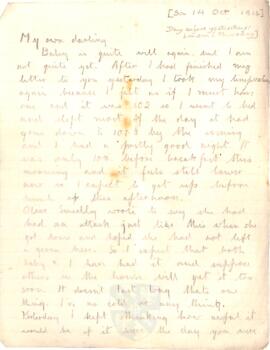 [Sun 14 Oct 1916]
Day before yesterday:
My own darling
Baby is quite well again but I am
not quite yet. After I had finished my
letter to you yesterday I took my temperature
again because I felt as if I must have
one and it was 102 so I went to bed
and slept most of the day it had
gone down to 101.3 by the evening
and I had a partly good night. It
was only 100 before breakfast this
morning and it feels still lower
now so I expect to get up before
this afternoon.
wrote to say she had
had an attack just like this when she
got down and hoped she had not left
a germ here. So I expect that both
baby & I have had it and suppose
others in the house will get it too
soon. It doesn't last long that's one
thing. I've no cold or any thing.
Yesterday I kept thinking how awful it
would be if it were the day you were